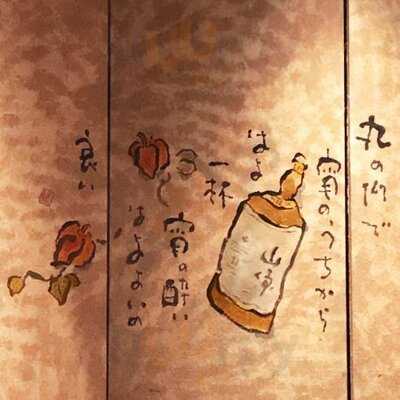 丸の内で
宵のうちから
はよ
一杯
宵の酔い
はよよいの
良い